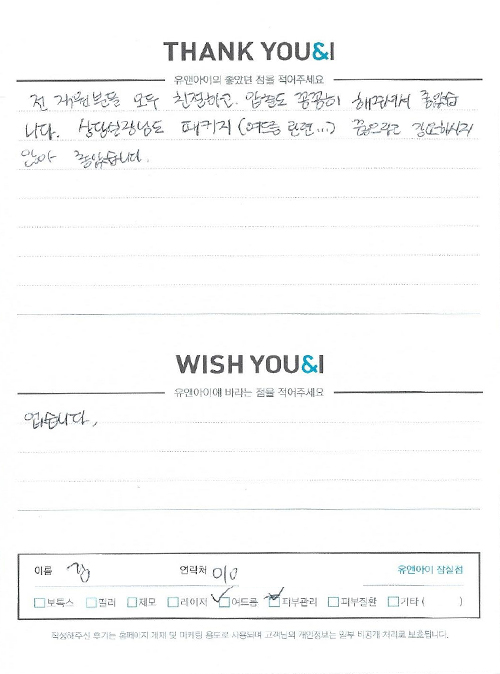 THANK YOU&I
유앤아이의 좋았던 점을 적어주세요
전 직원분들 모두 친절하고. 압출도 꼼꼼히 해주셔서 좋았습
니다. 상담실장님도 패키지(여드름 관련...) 끊으라고 강요하시지
않아 좋았습니다.
WISH YOU&I
유앤아이에 바라는 점을 적어주세요
없습니다.
이름 김 연락처 010 유앤아이 잠실점
보톡스 필러 제모 레이저 여드름 피부관리 피부질환 기타 ( )
작성해주신 후기는 홈페이지 게재 및 마케팅 용도로 사용되며 고객님의 개인정보는 일부 비공개 처리로 보호됩니다.